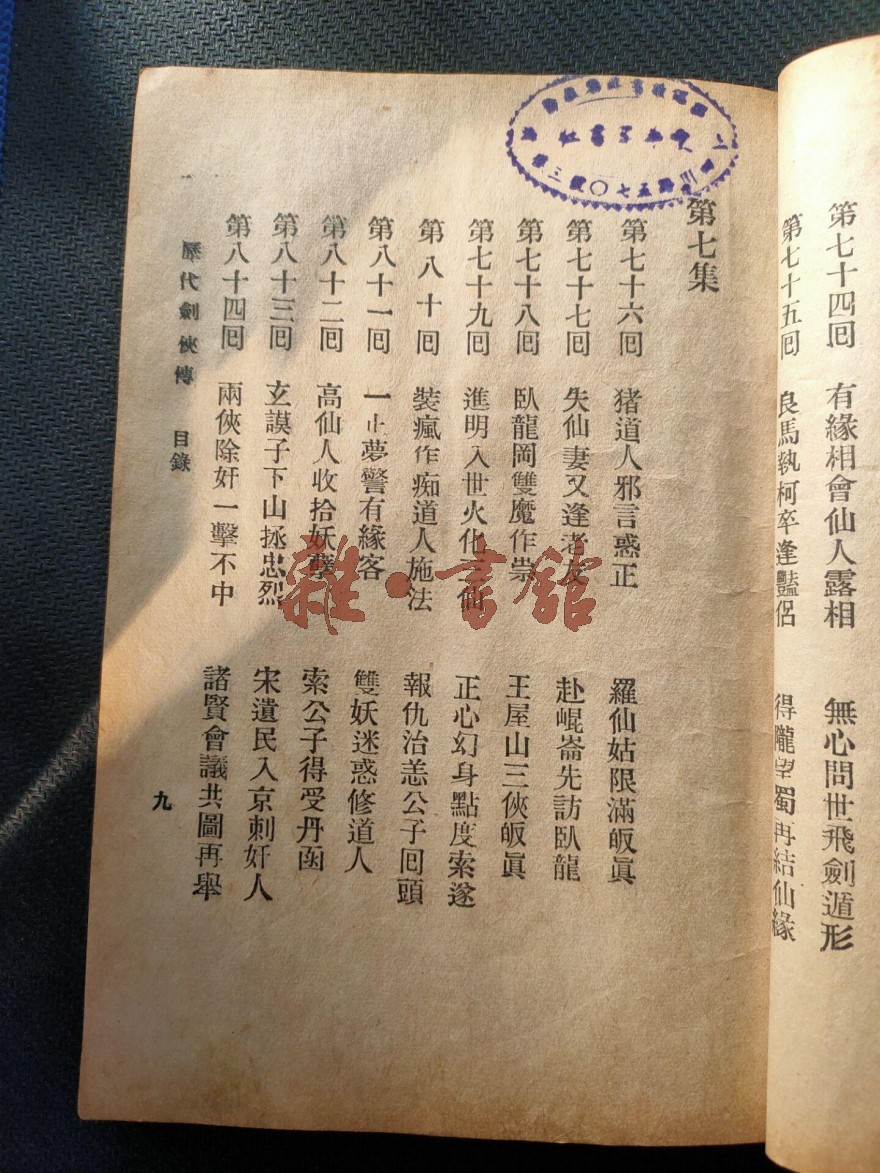 第七十四回 有緣相會仙人露相 無心問世飛劍遁形
第七十五回 良馬執柯卒逢豔侶 得隴望蜀再結仙緣
第七集
第七十六回 猪道人邪言惑正 羅仙姑限滿皈眞
第七十七回 失仙妻又逢老友 赴崐崙先訪臥龍
第七十八回 臥龍岡雙魔作祟 王屋山三俠皈眞
第七十九回 進明入世火化三仙 正心幻身點度索遂
第八十回 裝瘋作痴道人施法 報仇治恙公子回頭
第八十一回 一止夢警有緣客 雙妖迷惑修道人
第八十二回 高仙人收拾妖孽 索公子得受丹函
第八十三回 玄謨子下山拯忠烈 宋遺民入京刺奸人
第八十四回 兩俠除奸一擊不中 諸賢會議共圖再舉
歷代劍俠傳 目錄
九
雜·書館